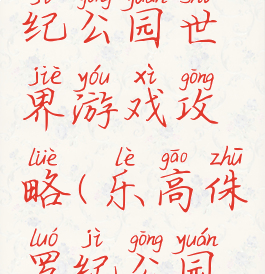 jì gōng yuán shì
纪公园世
jiè yóu xì gōng
界游戏攻
lüè lè gāo zhū
略(乐高侏
luó jì gōng yuán
罗纪公园